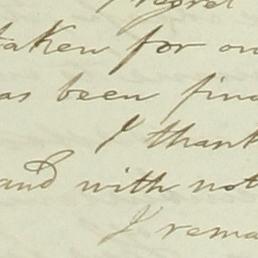 regret
taken for on
as been fin
I thank
and with not
I rema